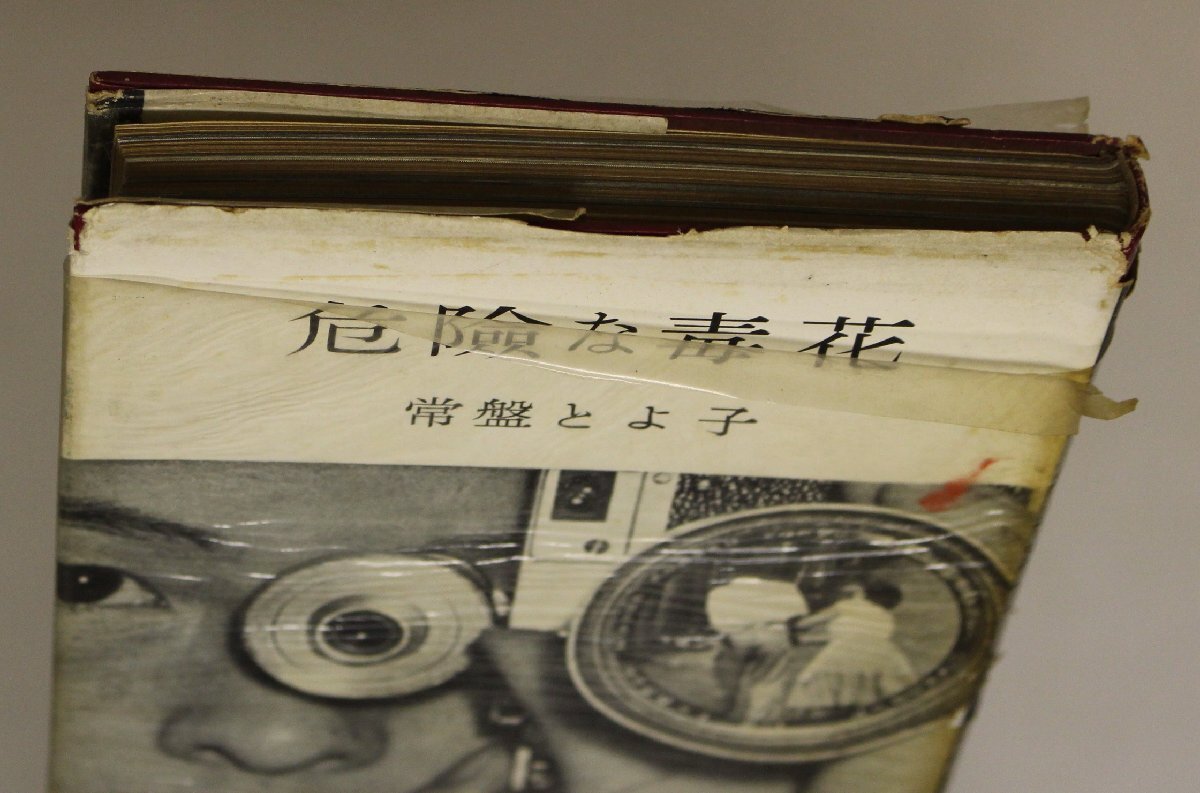 危險な毒花
常盤とよ子